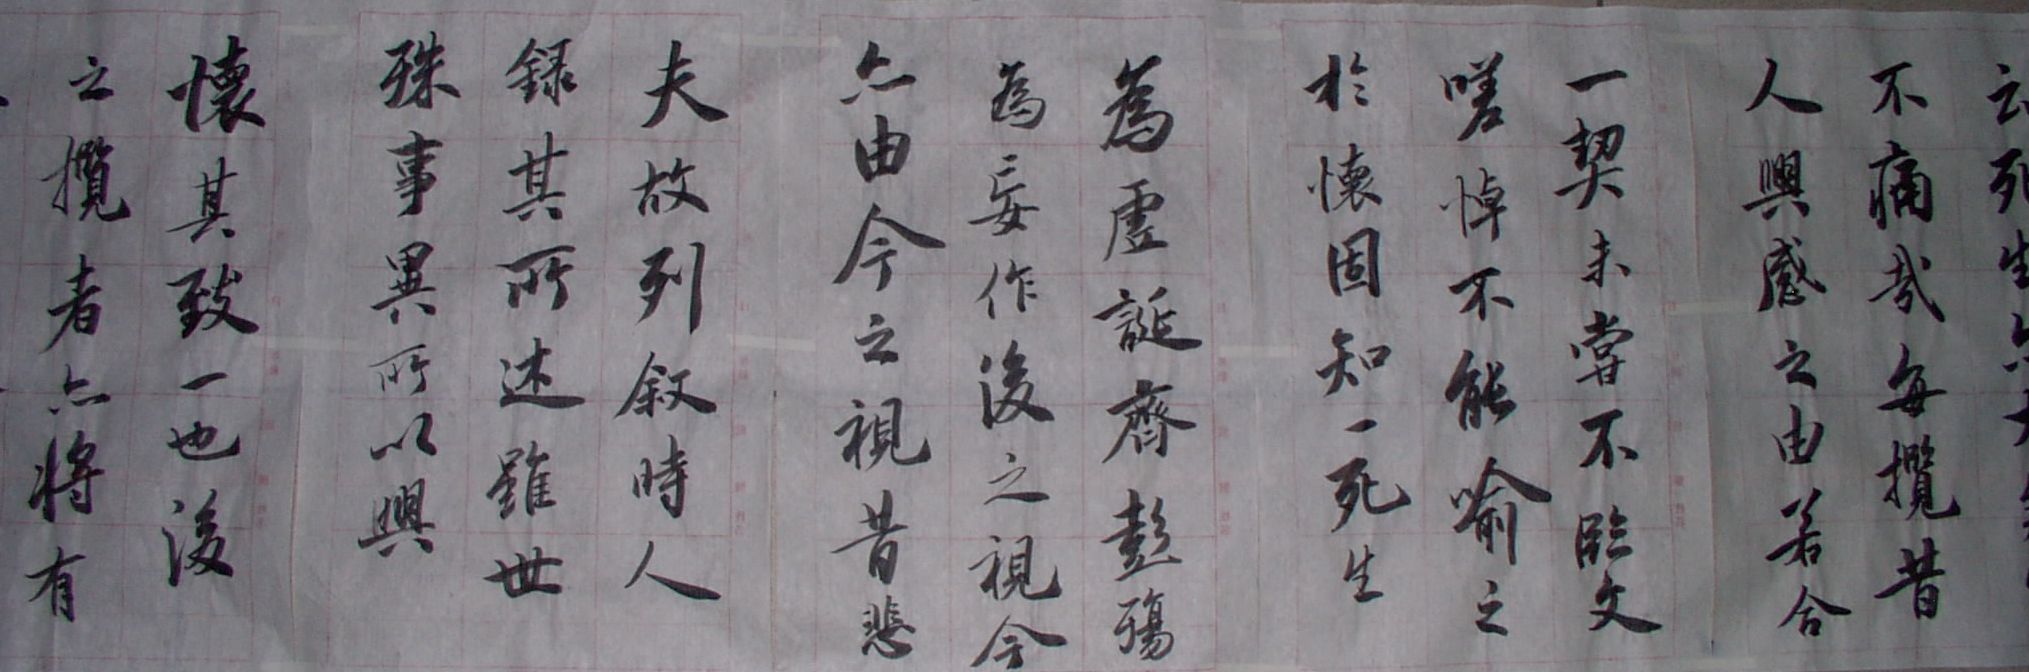 云死生亦大矣
不痛哉每攬昔
人興感之由若合
一契未嘗不臨文
嗟悼不能喻之
於懷固知一死生
為虛誕齊彭殤
為妄作後之視今
亦由今之視昔悲
夫故列叙時人
録其所述雖世
殊事異所以興
懷其致一也後
之攬者亦將有